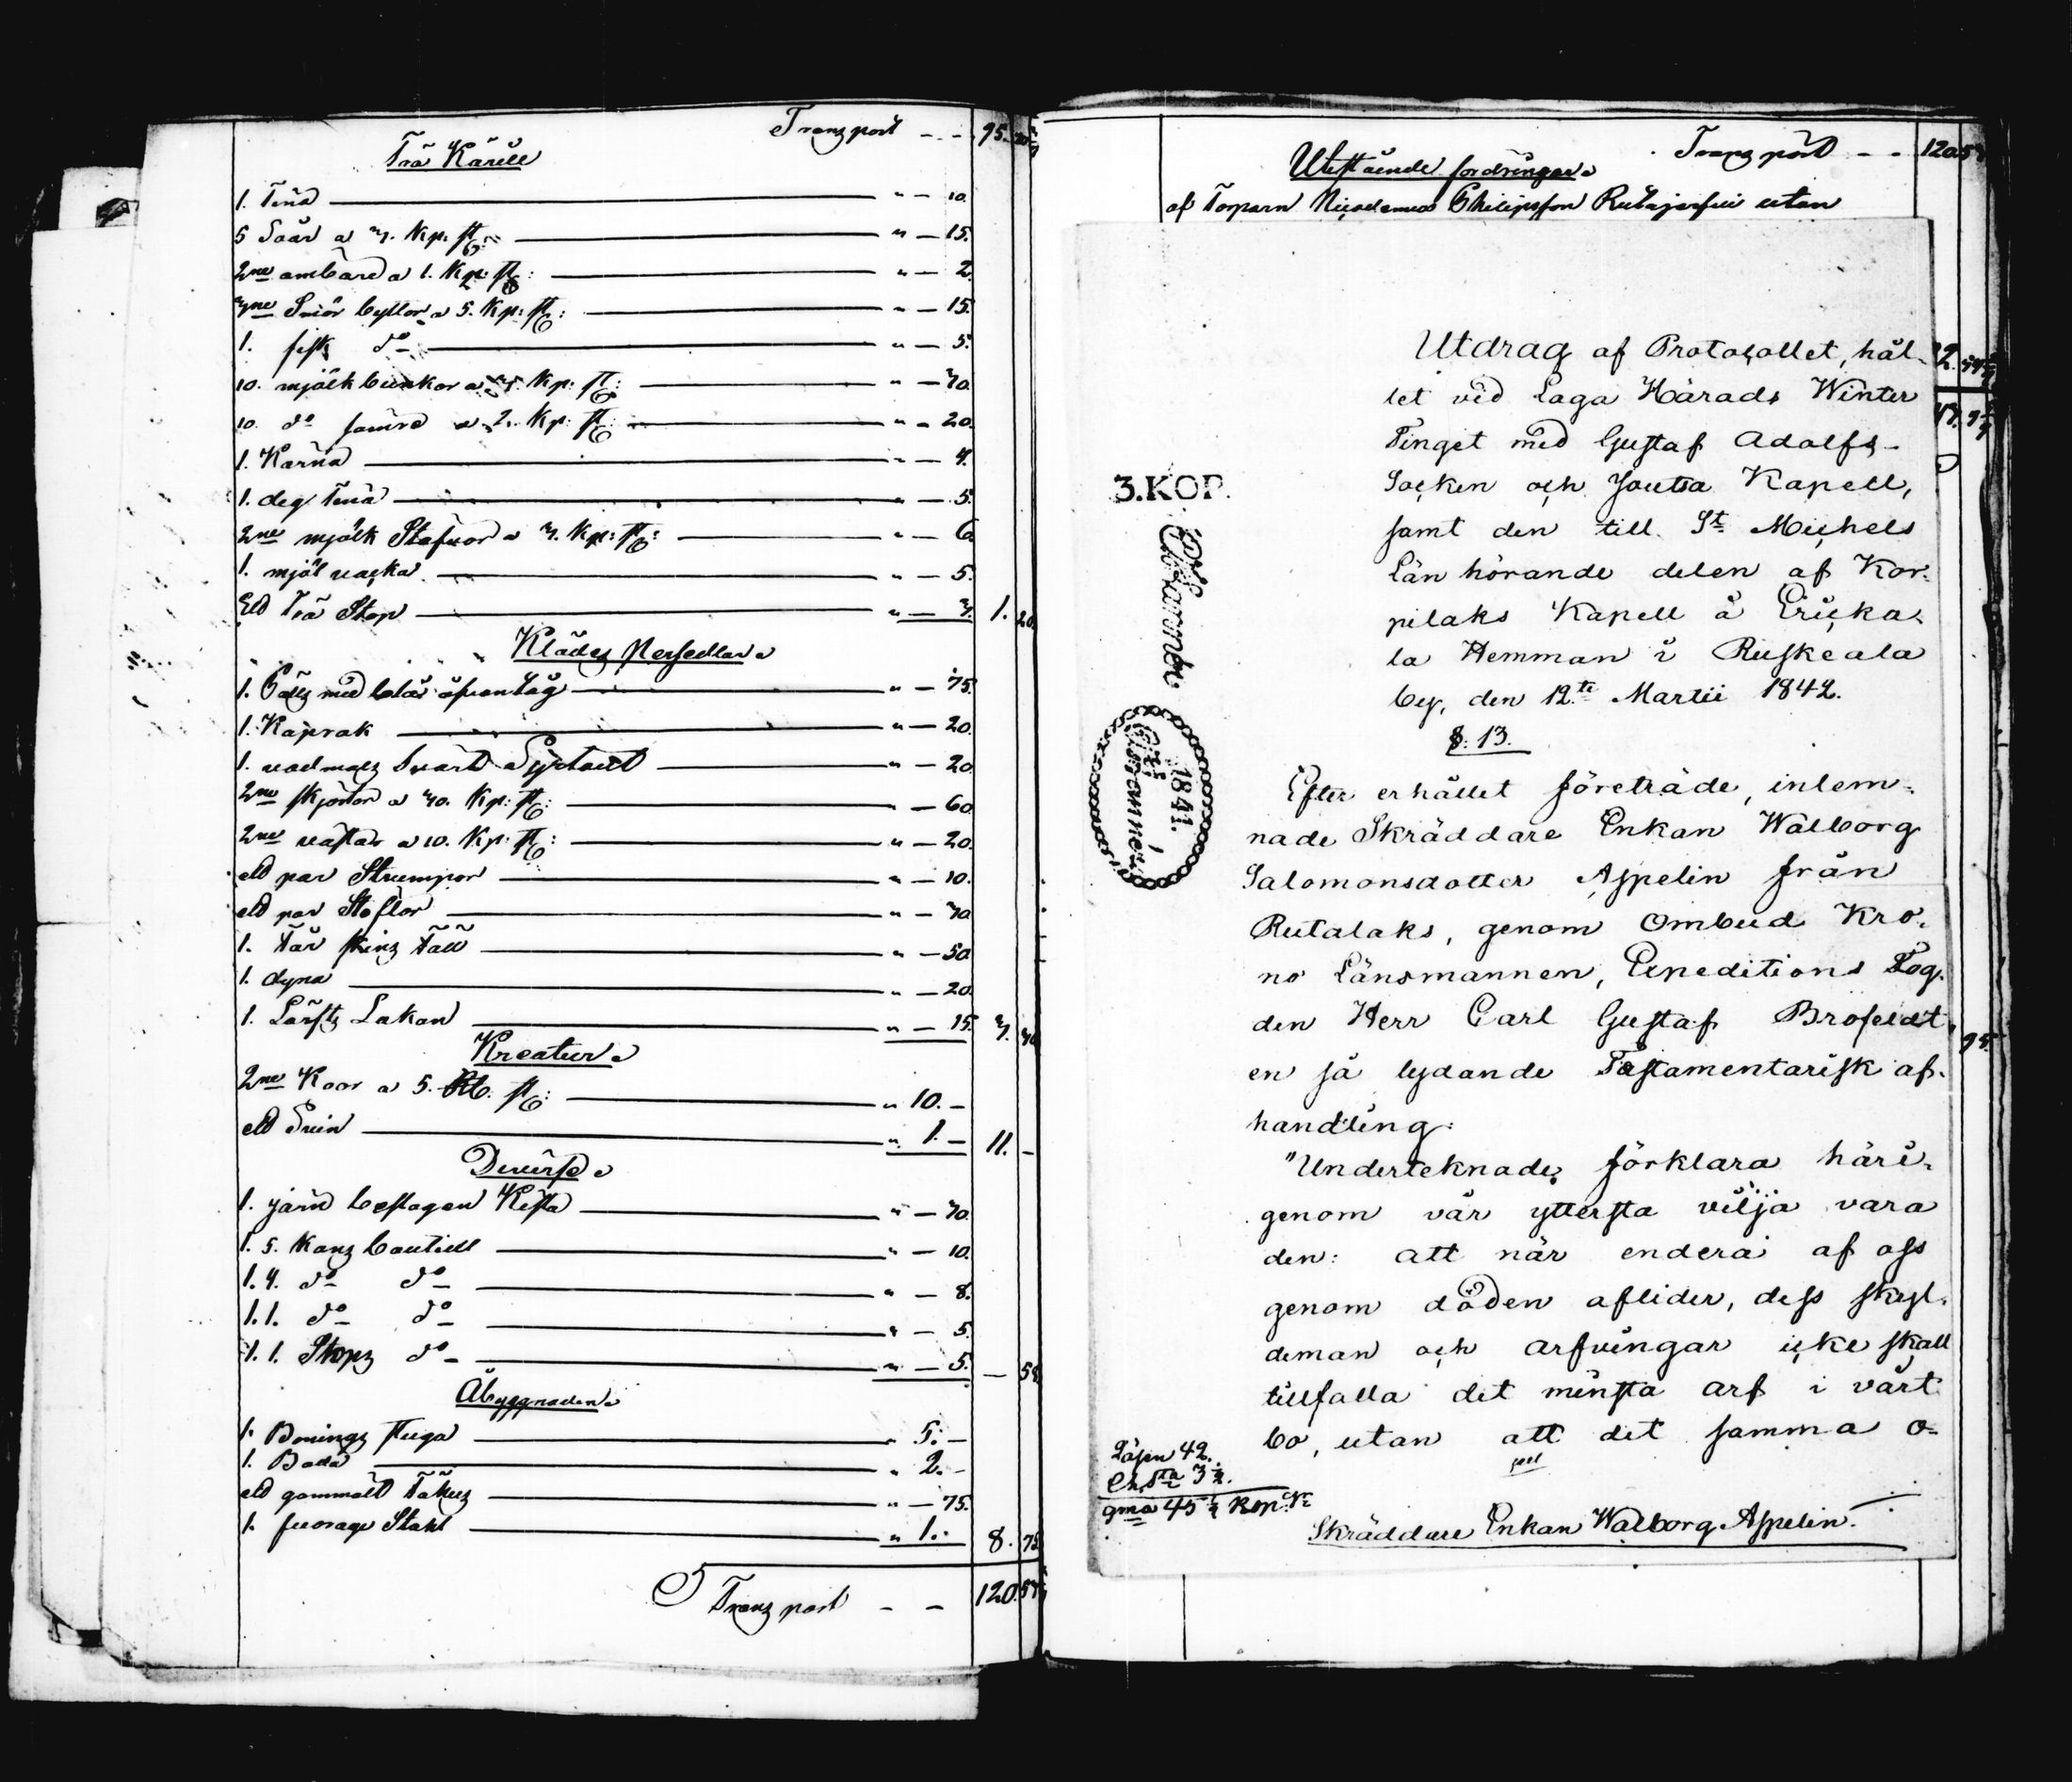 Transport - - 95.
Trä Käril
1. Tina " - 10.
5 Såår a 3. Kp: st: " - 15.
2ne ambare a 1. Kp: st: " - 2.
3ne Smör byttor a 5. Kp: st: " - 15.
1. fisk do " - 5.
10. mjölk bunkor a 3. Kp: st: " - 30.
10. do sämre a 2. Kp: st: " - 20.
1. Kärna " - 4.
1. deg Tina " - 5.
2ne mjölk Stäfvor a 3. Kp: st: " - 6.
1. mjöl vacka " - 5.
Ett Trä Stop " - 3. 1. 20.
Klädes Persedlar
1. Päls med blår öfvantyg " - 75.
1. Kaprak " - 20.
1. vadmals Svart Syrtout " - 20.
2ne skjortor a 30. Kp: st: " - 60.
2ne västar a 10. Kp: st: " - 20.
ett par Strumpor " - 10.
ett par Stöflor " - 30
1. Får skins Fäll " - 50
1. dyna " - 20.
1. Lärfts Lakan " - 15. 3. 20.
Kreatur
2ne Koor a 5. Rb. st: " 10. -
ett Svin " 1. - 11. -
Diverse
1. järn beslagen Kista " - 30.
1. 5. Kans bouteill " - 10.
1. 4. do do " - 8.
1. 1. do do " - 5.
1. 1. Stops do " - 5. - 58.
Åbyggnaden
1. Bonings stuga " 5. -
1. Boda " 2. -
ett gammalt Fähus " - 75.
1. fuorage Stall " 1. - 8. 75.
Transport - - 120.
Transport - - 120.
Utestående fordringar
af Torparn Nicodemus Philipsson Rutajerfvi utan
Utdrag af Protocollet, hål-
let vid Laga Härads Winter
Tinget med Gustaf Adolfs-
Socken och Joutsa Kapell,
samt den till St Michels
Län hörande delen af Kor-
pilaks Kapell å Ericka-
la Hemman i Ruskeala
by, den 12te Martii 1842.
§: 13.
Efter erhållet företräde, inlem-
nade Skräddare Enkan Walborg
Salomonsdotter Aspelin från
Rutalaks, genom Ombud Kro-
no Länsmannen, Expeditions Fog-
den Herr Carl Gustaf Brofeldt,
en så lydande Testamentarisk af-
handling:
"Undertecknade, förklara häri-
genom vår yttersta vilja vara
den: att när endera af oss
genom döden aflider, dess skyl-
deman och arfvingar icke skall
tillfalla det minsta arf i vårt
bo, utan att det samma o-
Skräddare Enkan Walborg Aspelin.
3.KOP.
1841.
Lösen 42.
Ch. Sta 3 ½.
gma 45 ½ Kop. Sr